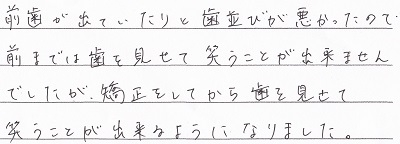 前歯が出ていたりと歯並びが悪かったので
前までは歯を見せて笑うことが出来ません
でしたが、矯正をしてから歯を見せて
笑うことが出来るようになりました。